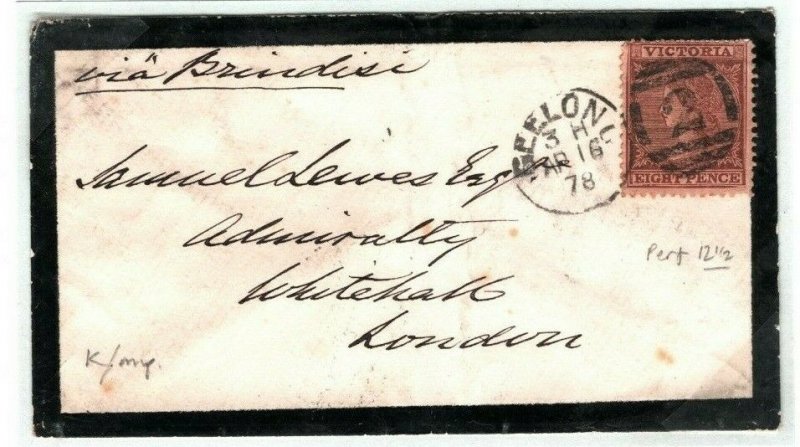 viâ Brindisi
VICTORIA
EIGHT PENCE
GEELONG
3 H
AP 16
78
Samuel Lewes Esq
Admiralty
Whitehall
London
Perf 12 1/2